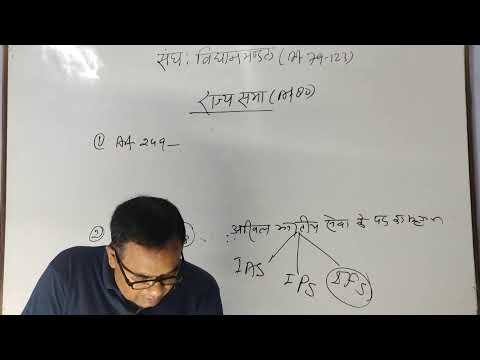 संघ: विधानमण्डल (Art 79-123)
राज्य सभा (Art 80)
① Art 249 –
② अखिल भारतीय सेवा के पद का सृजन
IAS IPS IFS